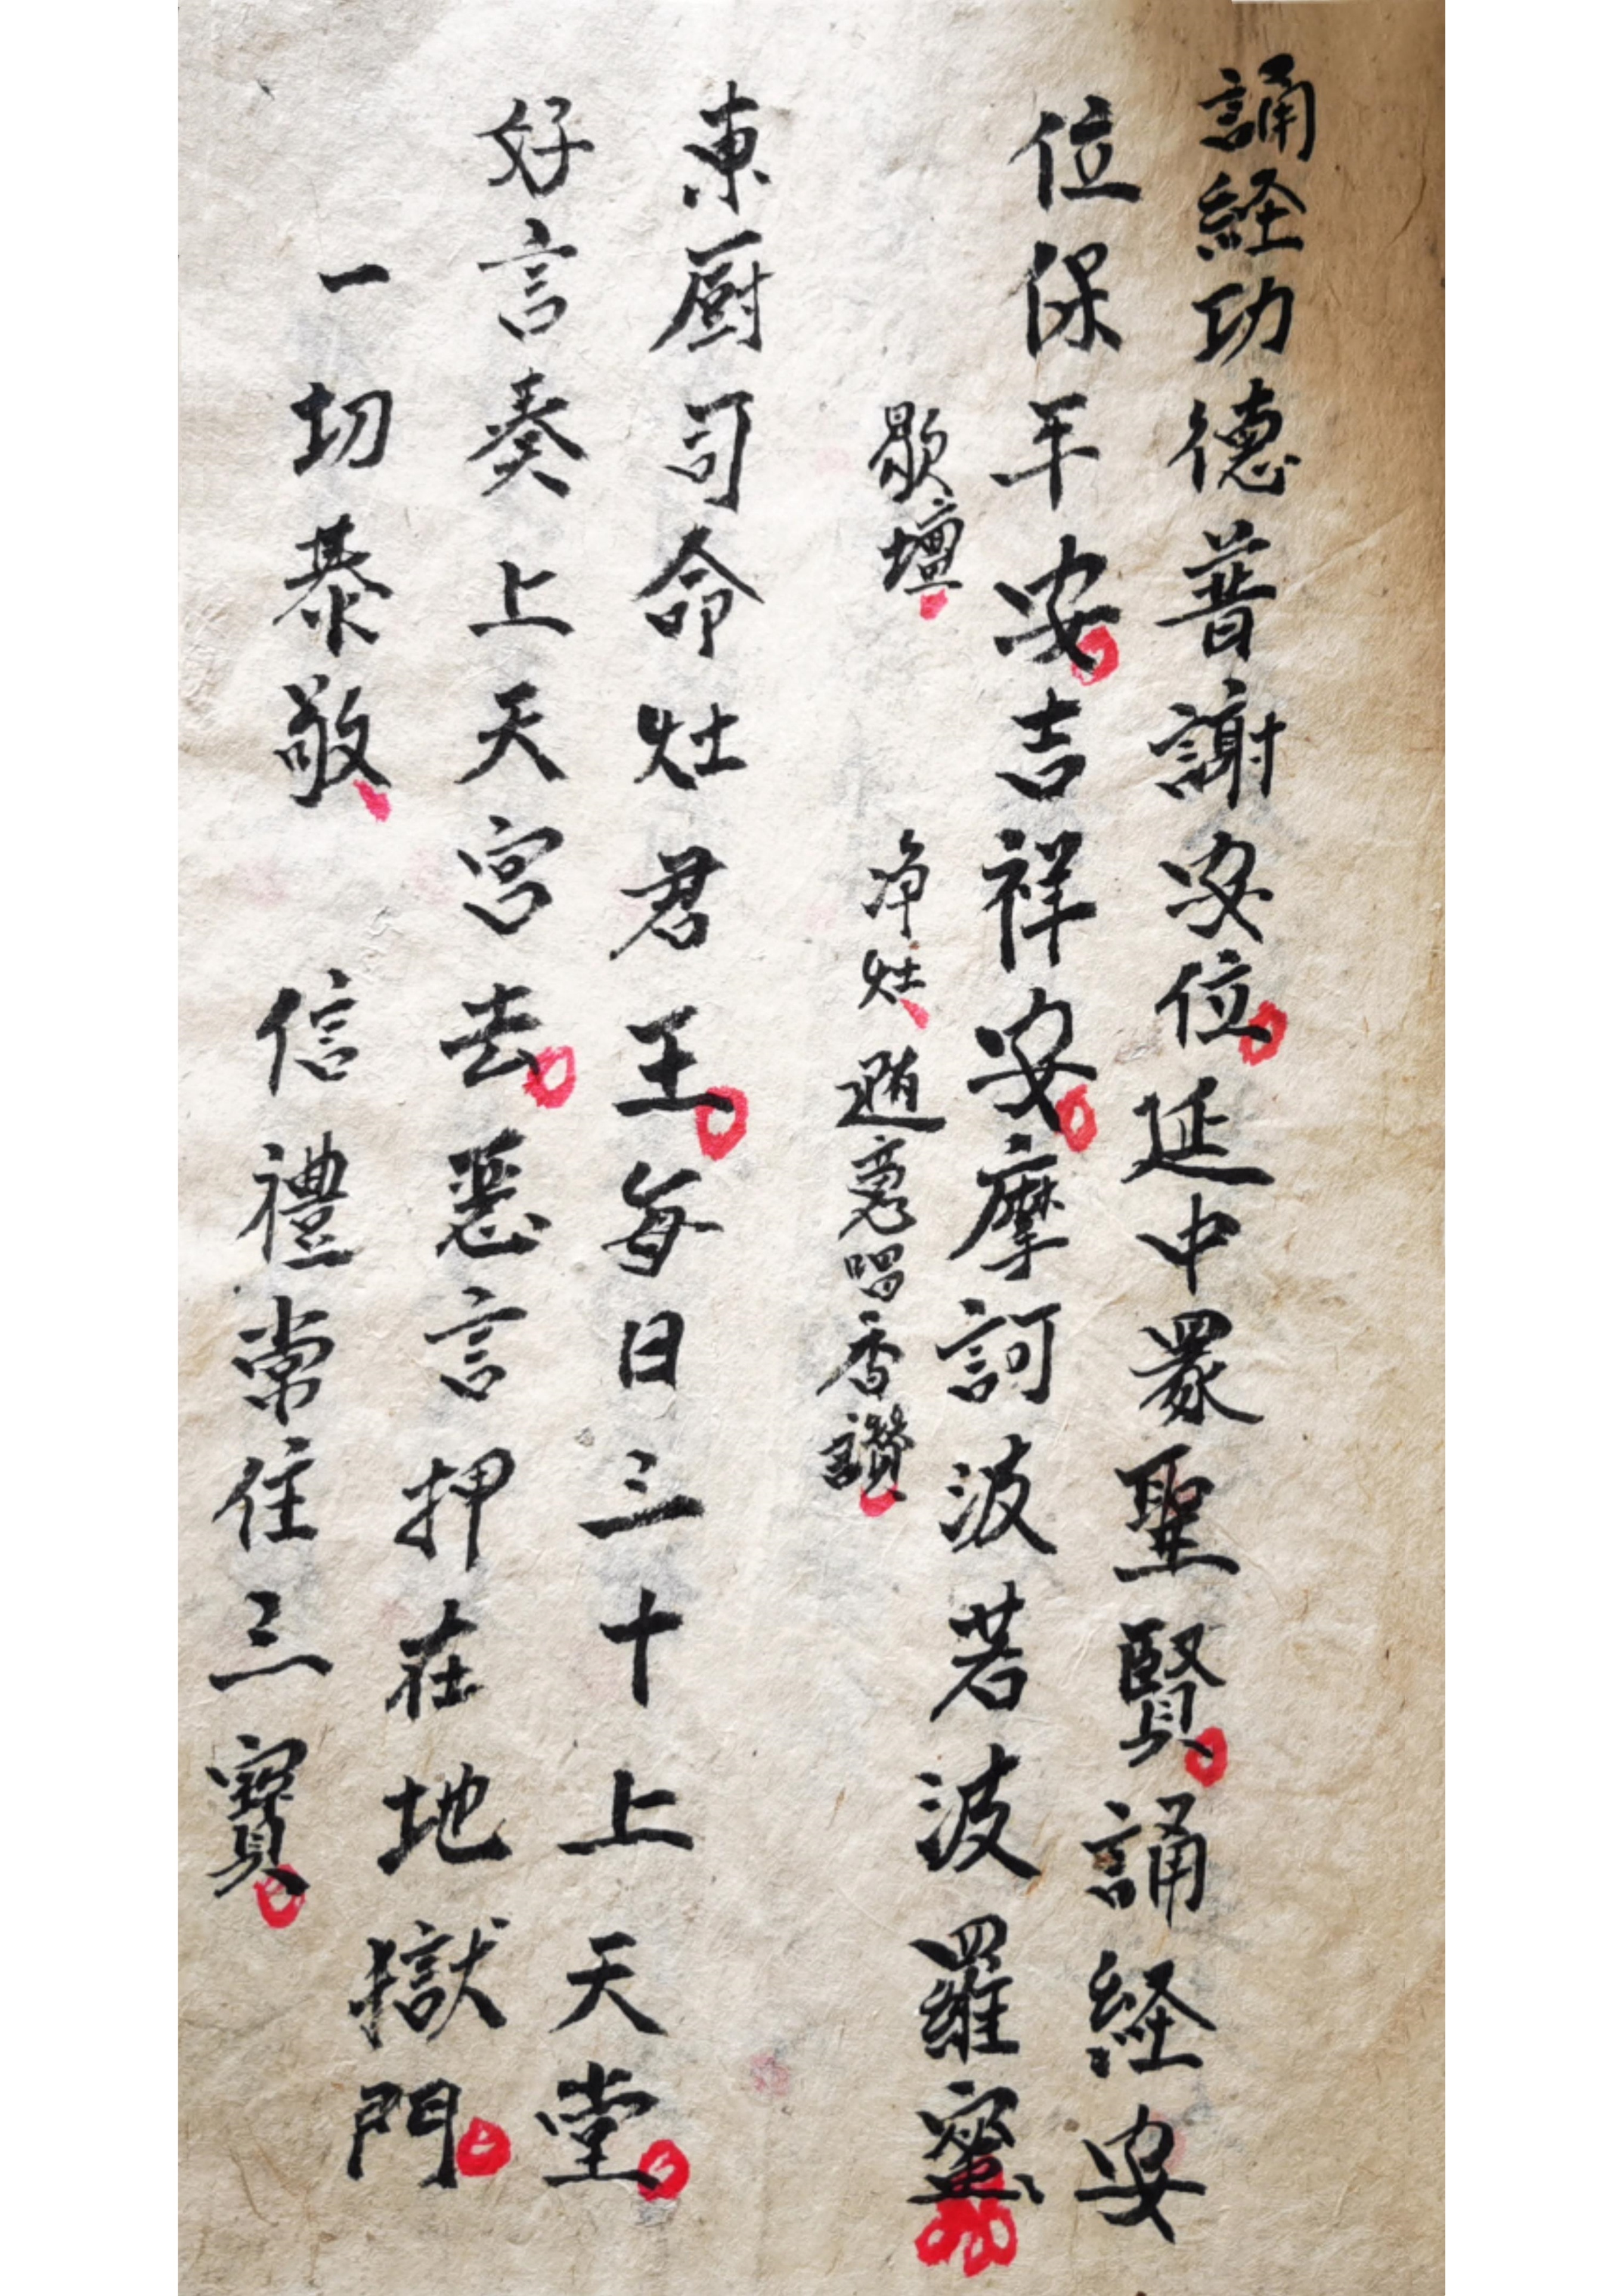 誦経功德普謝安位延中眾聖賢誦経安
位保平安吉祥安摩訶波若波羅蜜
歇壇 净灶 唱香讚
東厨司命灶君王每日三十上天堂
好言奏上天宮去惡言押在地獄門
一切恭敬 信禮常住三寶